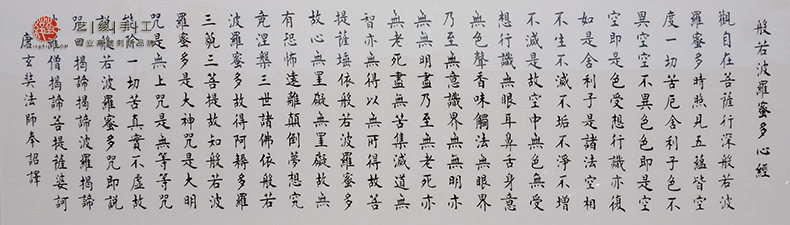 般若波羅蜜多心經
觀自在菩薩行深般若波
羅蜜多時照見五蘊皆空
度一切苦厄舍利子色不
異空空不異色色即是空
空即是色受想行識亦復
如是舍利子是諸法空相
不生不滅不垢不淨不增
不減是故空中無色無受
想行識無眼耳鼻舌身意
無色聲香味觸法無眼界
乃至無意識界無無明亦
無無明盡乃至無老死亦
無老死盡無苦集滅道無
智亦無得以無所得故菩
提薩埵依般若波羅蜜多
故心無罣礙無罣礙故無
有恐怖遠離顛倒夢想究
竟涅槃三世諸佛依般若
波羅蜜多故得阿耨多羅
三藐三菩提故知般若波
羅蜜多是大神咒是大明
咒是無上咒是無等等咒
除一切苦真實不虛故
般若波羅蜜多咒即說
揭諦揭諦波羅揭諦
羅僧揭諦菩提薩婆訶
唐玄奘法師奉詔譯